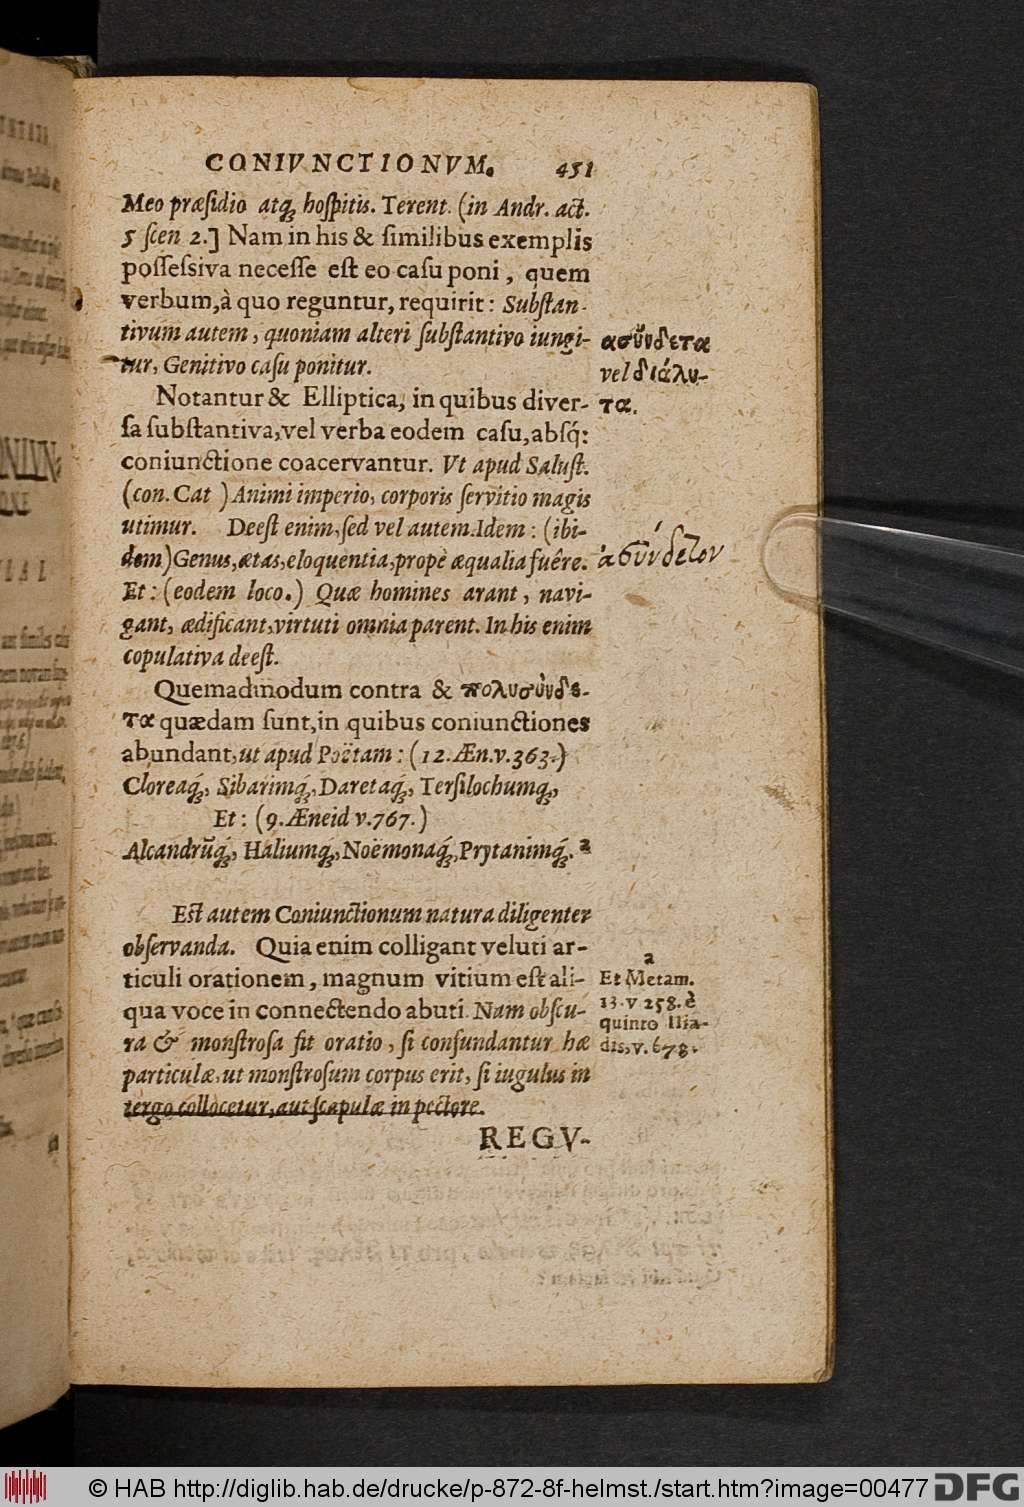 CONIVNCTIONVM. 451
Meo præsidio atq́; hospitis. Terent. (in Andr. act.
5 scen 2.] Nam in his & similibus exemplis
possessiva necesse est eo casu poni, quem
verbum, à quo reguntur, requirit: Substan-
tivum autem, quoniam alteri substantivo iungi-
tur, Genitivo casu ponitur.
ασύνδετα
vel διάλυ-
τα.
Notantur & Elliptica, in quibus diver-
sa substantiva, vel verba eodem casu, absq́:
coniunctione coacervantur. Vt apud Salust.
(con. Cat ) Animi imperio, corporis servitio magis
utimur. Deest enim, sed vel autem. Idem: (ibi-
dem) Genus, ætas, eloquentia, propè æqualia fuêre.
ἀσύνδετον
Et: (eodem loco.) Quæ homines arant, navi-
gant, ædificant, virtuti omnia parent. In his enim
copulativa deest.
Quemadmodum contra & πολυσύνδε-
τα quædam sunt, in quibus coniunctiones
abundant, ut apud Poëtam: (12. Æn. v. 363.)
Cloreaq́;, Sibarimq́;, Daretaq́;, Tersilochumq́;,
Et: (9. Æneid v. 767.)
Alcandrũq́;, Haliumq́;, Noëmonaq́;, Prytanimq́;. a
Est autem Coniunctionum natura diligenter
observanda. Quia enim colligant veluti ar-
ticuli orationem, magnum vitium est ali-
qua voce in connectendo abuti. Nam obscu-
ra & monstrosa fit oratio, si confundantur hæ
particulæ, ut monstrosum corpus erit, si iugulus in
tergo collocetur, aut scapulæ in pectore.
a
Et Metam.
13. v 258. è
quinto Ilia-
dis, v. 678.
REGV-
© HAB http://diglib.hab.de/drucke/p-872-8f-helmst./start.htm?image=00477 DFG